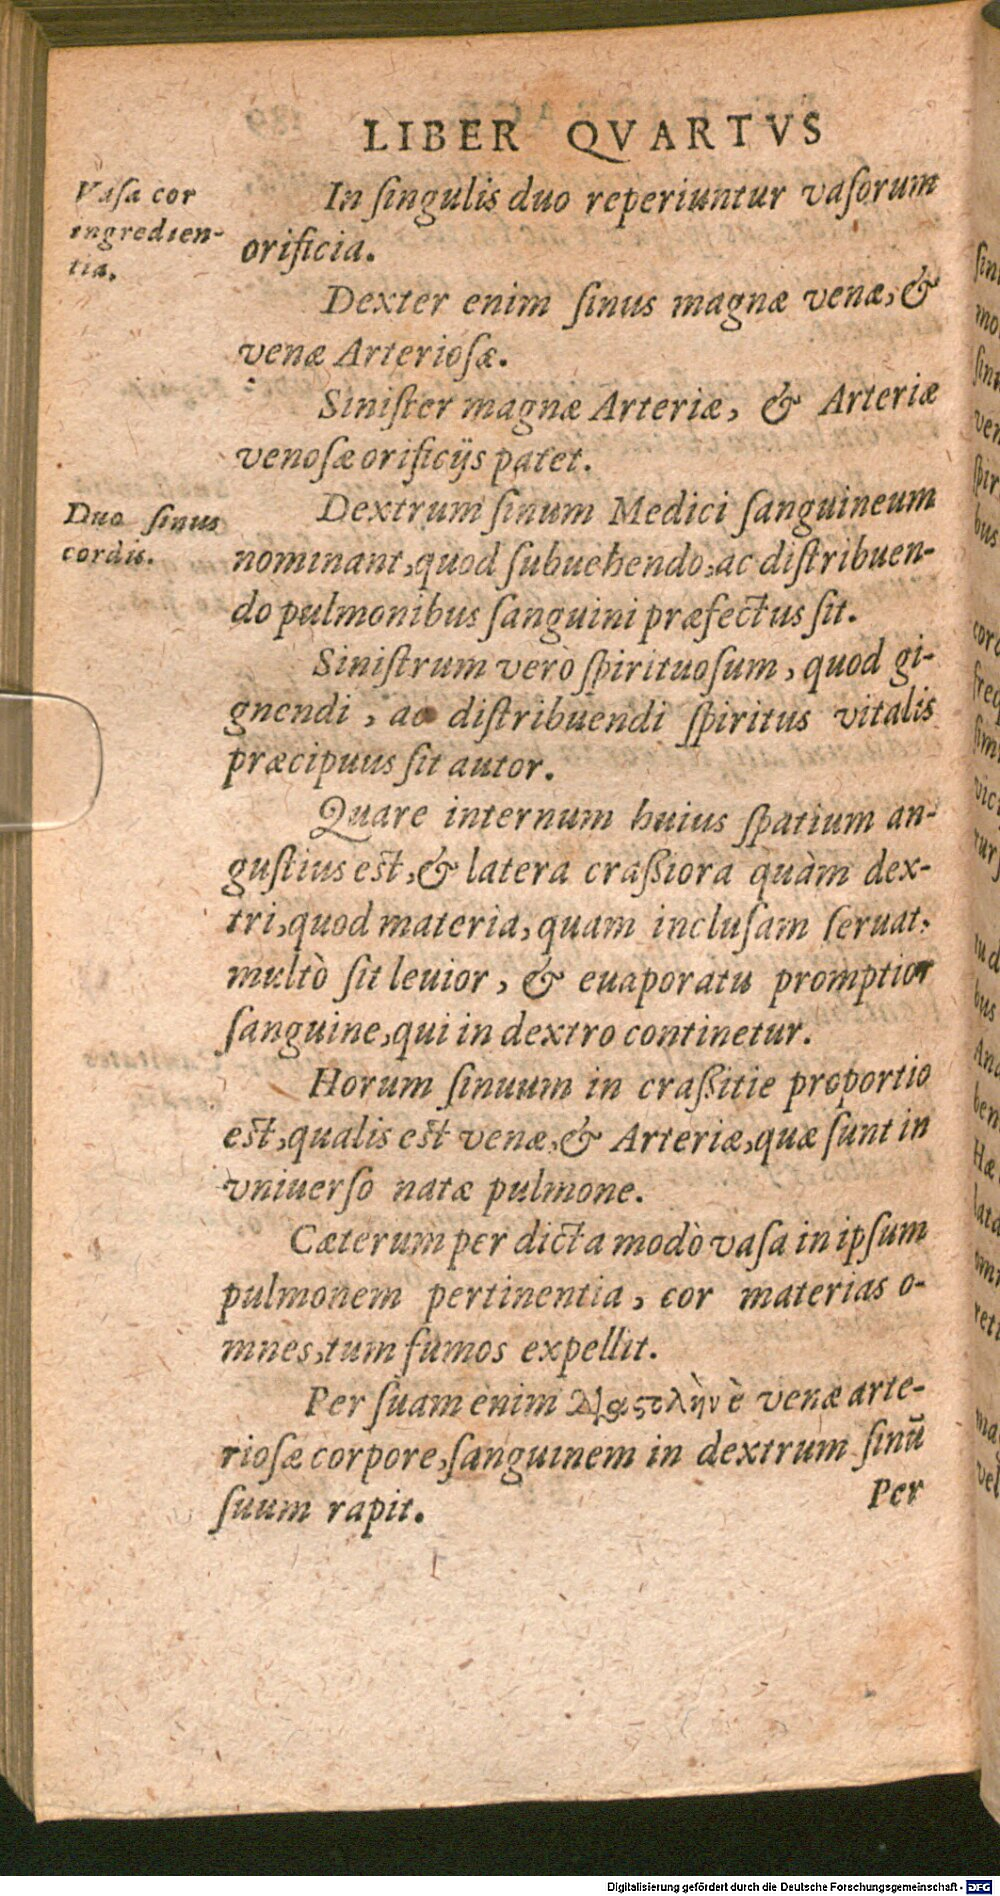 LIBER QVARTVS
Vasa cor
ingredien-
tia.
In ſingulis duo reperiuntur vaſorum
orificia.
Dexter enim ſinus magnæ venæ, &
venæ Arterioſæ.
Siniſter magnæ Arteriæ, & Arteriæ
venoſæ orificijs patet.
Duo ſinus
cordis.
Dextrum ſinum Medici ſanguineum
nominant, quod ſubuehendo, ac diſtribuen-
do pulmonibus ſanguini præfectus ſit.
Siniſtrum verò ſpirituoſum, quod gi-
gnendi, ac diſtribuendi ſpiritus vitalis
præcipuus ſit autor.
Quare internum huius ſpatium an-
guſtius eſt, & latera craßiora quàm dex-
tri, quod materia, quam incluſam ſeruat,
multò ſit leuior, & euaporatu promptior
ſanguine, qui in dextro continetur.
Horum ſinuum in craßitie proportio
eſt, qualis eſt venæ, & Arteriæ, quæ ſunt in
vniuerſo natæ pulmone.
Cæterum per dicta modò vaſa in ipſum
pulmonem pertinentia, cor materias o-
mnes, tum fumos expellit.
Per ſuam enim è venæ arte-
rioſæ corpore, ſanguinem in dextrum ſinū
ſuum rapit.
Per
Digitalisierung gefördert durch die Deutsche Forschungsgemeinschaft - DFG